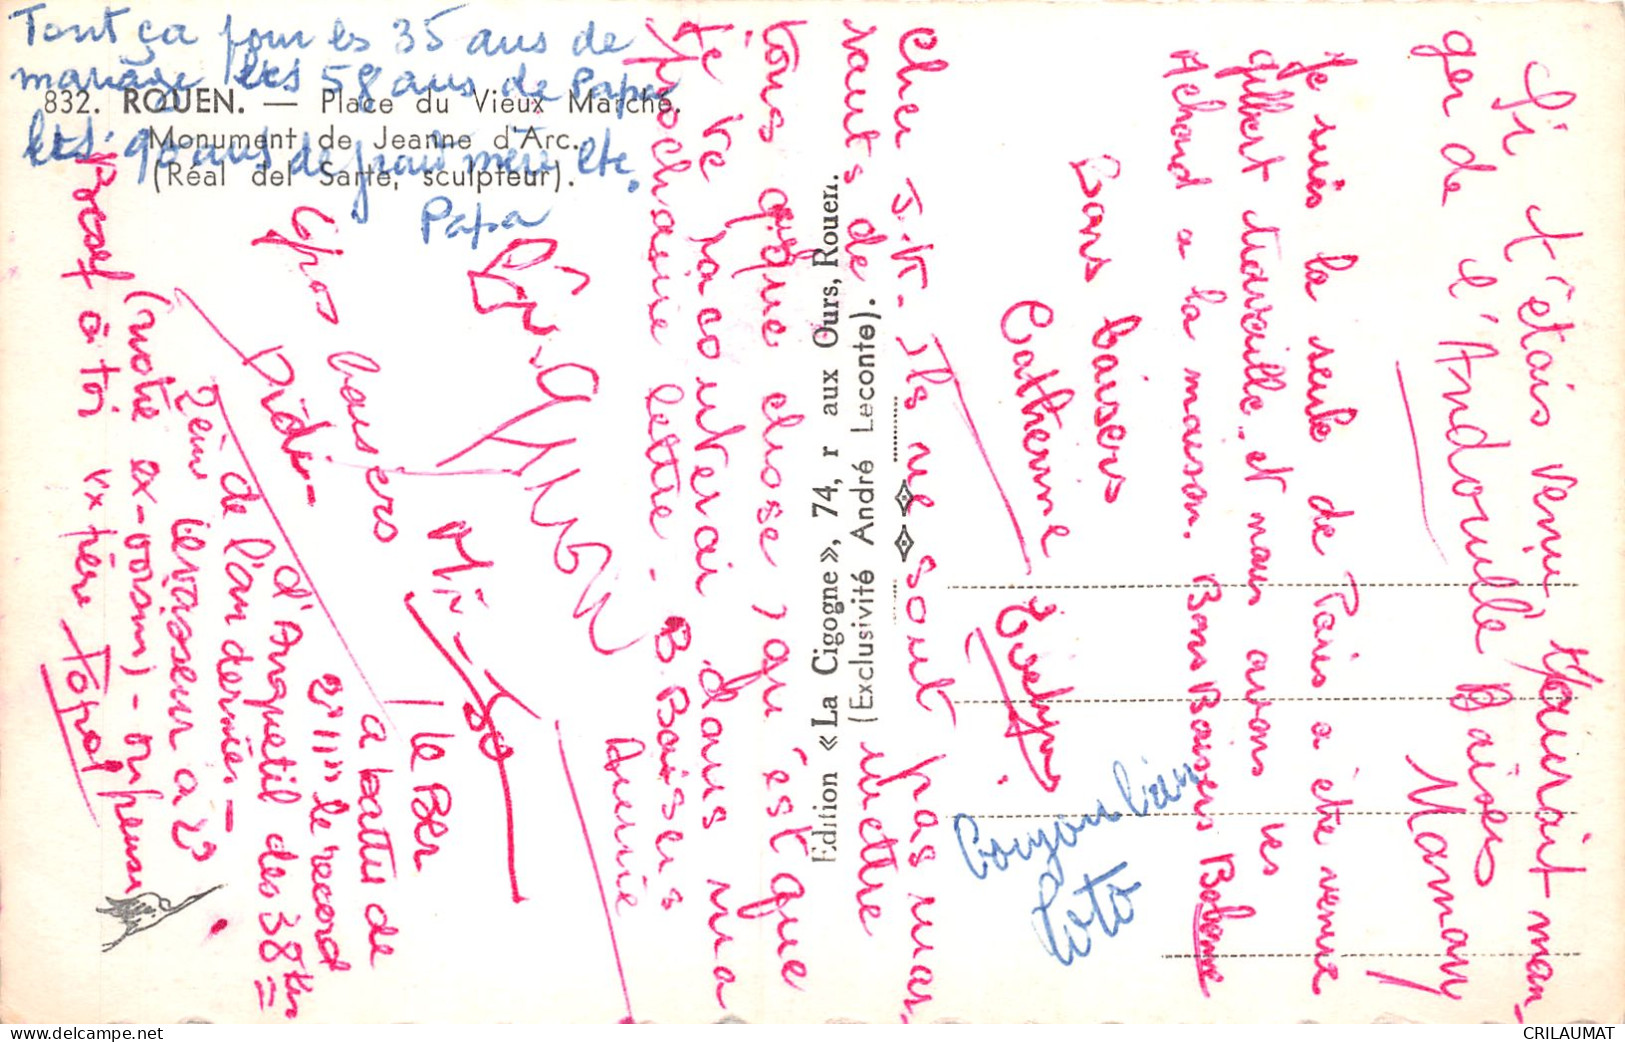 Tout ça pour les 35 ans de
mariage les 58 ans de Papa
les 90 ans de grand mère etc.
Papa
832. ROUEN. — Place du Vieux Marché.
Monument de Jeanne d'Arc.
(Réal del Sarte, sculpteur).
Edition « La Cigogne », 74, r aux Ours, Rouen.
(Exclusivité André Leconte).
Si t'étais venu, t'aurait man-
ger de l'Andouille Baises
Maman
Je suis la seule de Paris a être venue
Gilbert travaille.. et nous avons les
Achard a la maison. Bons Baisers Bobonne
Bons baisers
Catherine
Cher J.P. Ils ne sont pas mar-
rants de mettre
tous quelque chose, qu'est que
je te raconterai dans ma
prochaine lettre. B. Baisers
Annie
Gros baisers
Didi
le Ber
a battu de
2' 11" le record
d'Anquetil des 38 km
de l'an dernier -
2ème
(notre ex-
à toi
Bonjour bien
Toto
CRILAUMAT